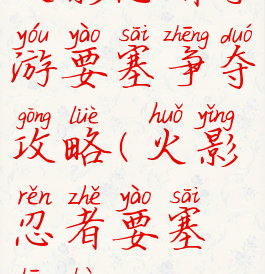 yóu yào sāi zhēng duó
游要塞争夺
gōng lüè huǒ yǐng
攻略(火影
rěn zhě yào sāi
忍者要塞